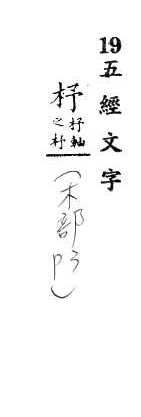 19五經文字
杼杼軸之杼
(木部p3)